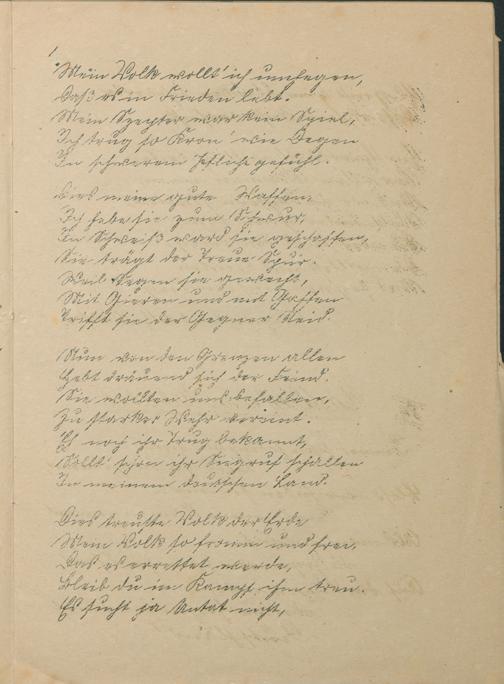 Mein Volk wollt' ich umhegen,
Daß es in Frieden lebt.
Mein Szepter war kein Spiel,
Ich trug so Kron' wie Degen
In schwerem Pflichtgefühl.
Dies meine gute Waffen,
Ich hebe sie zum Schwur,
In Schweiß ward sie geschaffen,
Sie trägt der Treue Spur.
Weil Segen sie geweiht,
Mit Gieren und mit Gaffen
Trifft sie der Gegner Neid.
Nun von den Grenzen allen
Hebt dräuend sich der Feind.
Sie wollten uns
Zu starker Wehr vereint.
Eh' noch ihr Trug bekannt,
Sollt' schon ihr Siegruf schallen
In meinem deutschen Land.
Dies treuste Volk der Erde
Mein Volk so fromm und frei,
Das es errettet werde,
Bleib du im Kampf ihm treu.
Es sucht ja Antat nicht,